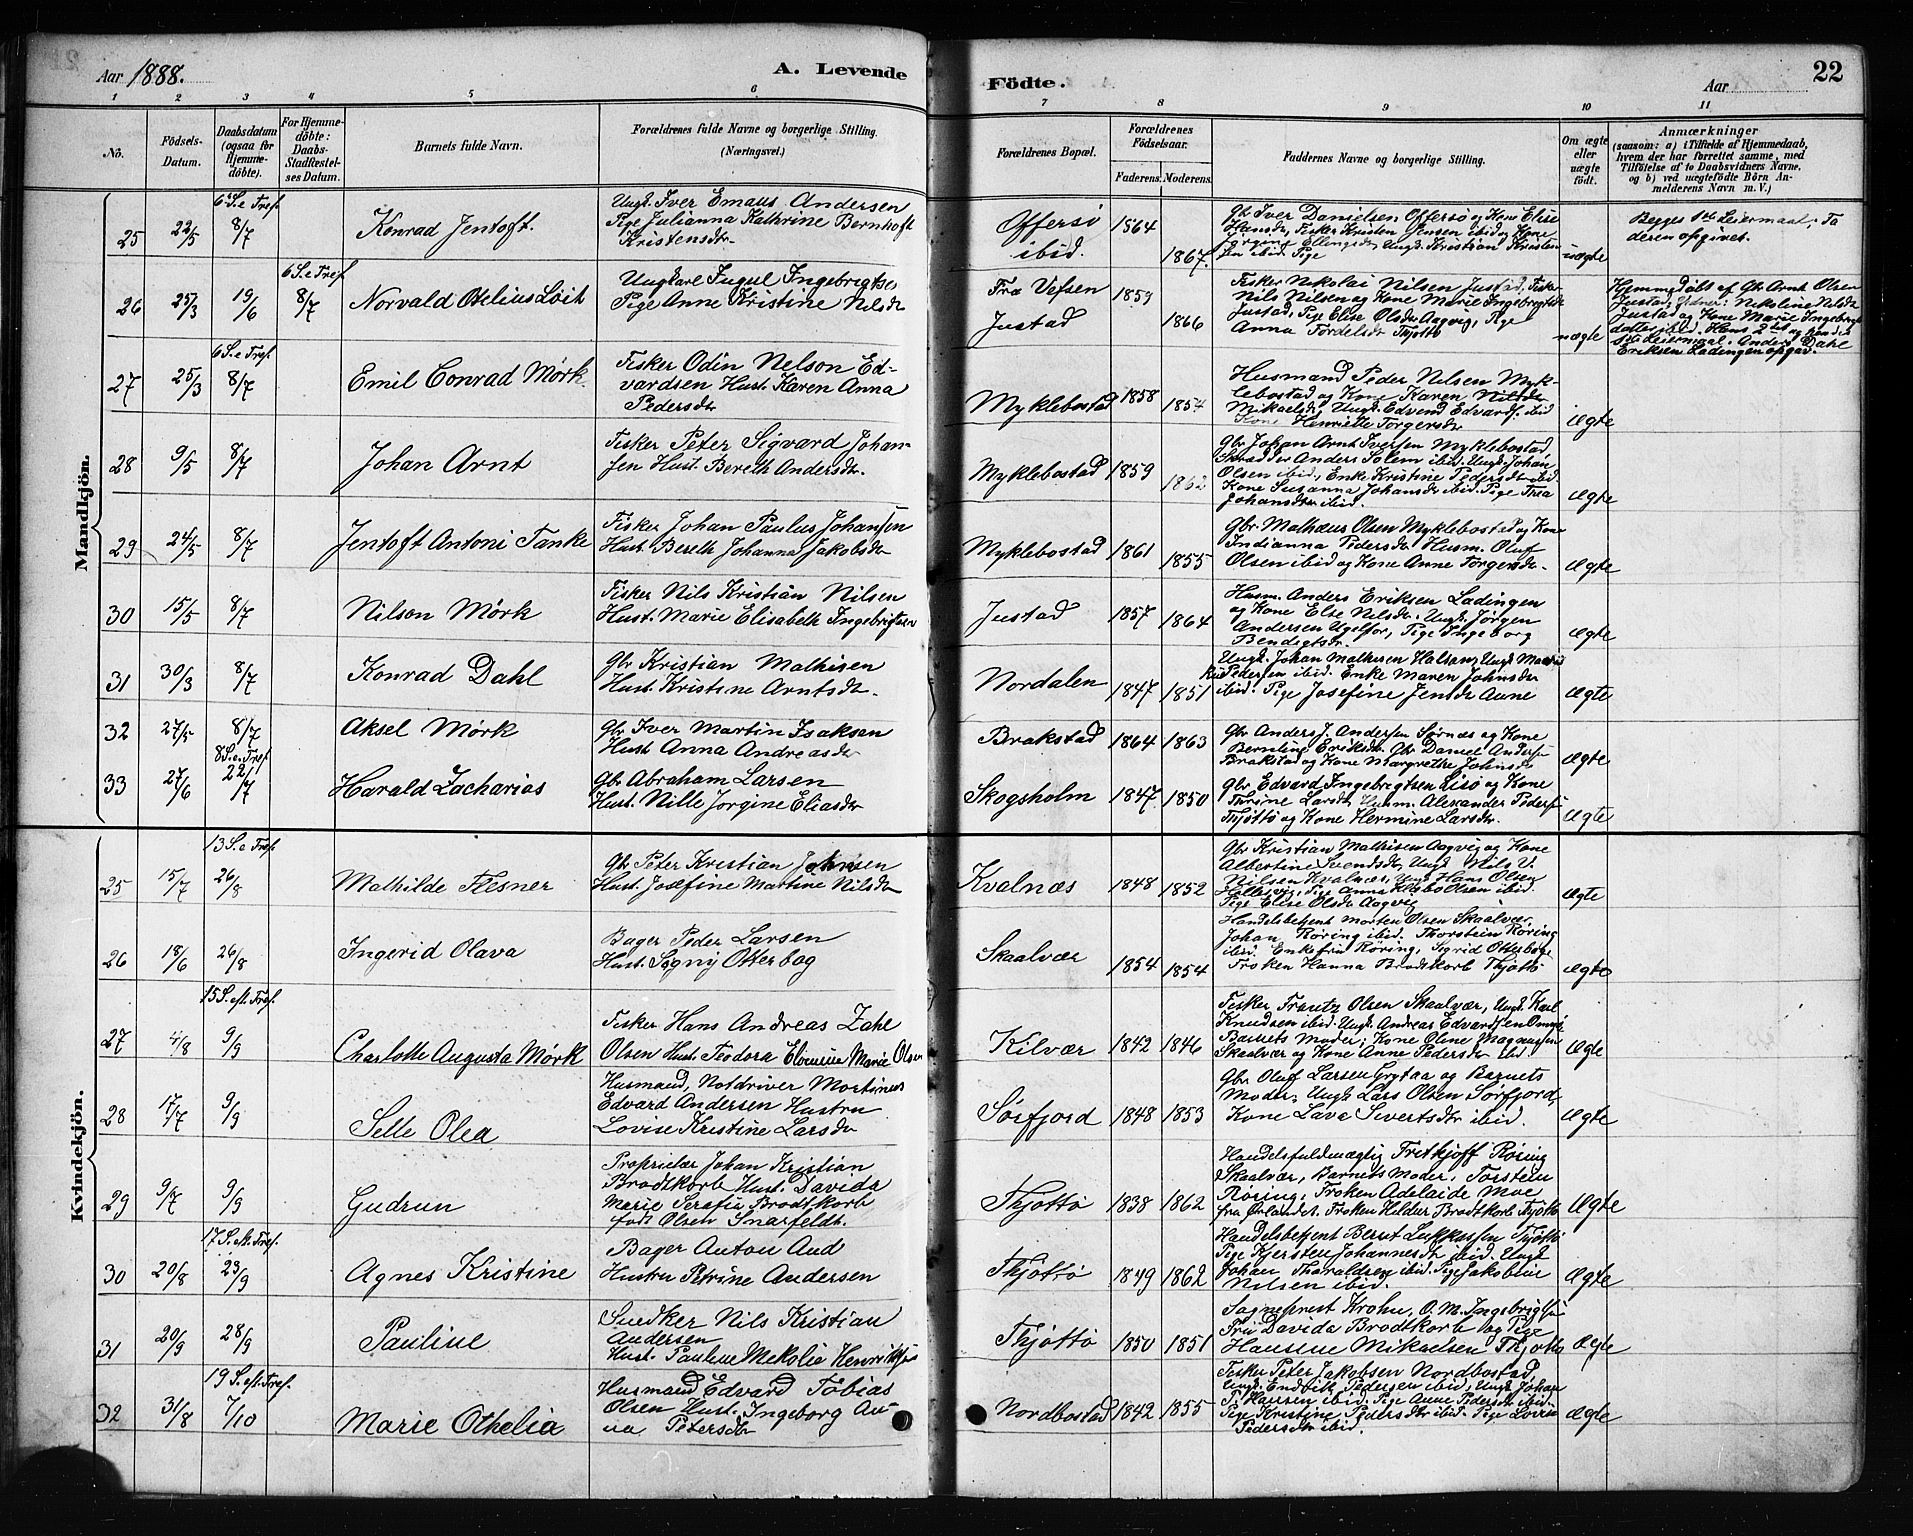 Aar 1888.
A. Levende
Födte.
Aar
22
1 2 3 4 5 6
7 8 9 10 11
No.
Födsels-
Datum.
Daabsdatum
(ogsaa for
Hjemme-
döbte).
For Hjemme-
döbte:
Daabs-
Stadfæstel-
ses Datum.
Barnets fulde Navn.
Forældrenes fulde Navne og borgerlige Stilling.
(Næringsvei.)
Forældrenes Bopæl.
Forældrenes
Födselsaar.
Faderens. Moderens.
Faddernes Navne og borgerlige Stilling.
Om ægte
eller
uægte
födt.
Anmærkninger
(saasom: a) i Tilfælde af Hjemmedaab,
hvem der har forrettet samme, med
Tilföielse af to Daabsvidners Navne,
og b) ved uægtefödte Börn An-
melderens Navn m. V.)
Mandkjön.
6 S. e Tref
25 22/5 8/7 Konrad Jentoft.
Ungk Iver Emaus Andersen
Pige Julianna Kathrine Bernhoft
Kristensdtr.
Offersø
ibid.
1864
1867.
Gbr Iver Danielsen Offersø og Kone Elise
Hansdr, Fisker Kristen Jensen ibid og Kone
Ellingsdr, Ungk. Kristian Kristen
sen ibid. Pige
uægte
Begges 1ste Leiermaal; Fa
deren opgivet.
6 S. e Tref.
26 25/3 19/6 8/7 Norvald Otelius Løit
Ungkarl Ingul Ingebrigtse
Pige Anne Kristine Nilsdr
Fra Vefsen
Justad
1859
1866
Fisker Nikolai Nilsen Justad, Fisker
Nils Nilsen og Kone Marie Ingebrigtsdr
Justad, Pige Elise Olsdr Aagvig, Pige
Anna Tordelsdr Thjøttø
uægte
Hjemmedøbt af Gbr Arnt Olsen
Justad; Vidner: Nikoline Nilsdr
Justad og Kone Marie Ingebrigts
datter ibid. Hans 2det og hendes
1ste Leiermaal. Anders Dahl
Eriksen Ladingen opgav.
6 S. e Tref.
27 25/3 8/7 Emil Conrad Mørk
Fisker Odin Nelson Ed-
vardsen Hust. Karen Anna
Pedersdr
Myklebostad 1858 1854
Husmand Peder Nilsen Myk-
lebostad og Kone Karen Nilsdr
Mikaelsdr, Ungk. Edvend Edvards. ibid
Kone Henriette Torgersdr
Ægte
28 9/5 8/7 Johan Arnt
Fisker Peter Sigvard Johan-
sen Hust. Bereth Andersdr.
Myklebostad 1859 1862
Gbr Johan Arnt Iversen Myklebostad,
Skrædder Anders Solem ibid. Ungk Johan
Olsen ibid, Enke Kristine Pedersdr ibid.
Kone Susanna Johansdr ibid. Pige Thea
Johansdtr ibid.
Ægte
29 24/5 8/7 Jentoft Antoni Tanke
Fisker Johan Paulus Johansen
Hust. Bereth Johanna Jakobsdr
Myklebostad 1861 1855
Gbr. Mathæus Olsen Myklebostad og Kone
Indianna Pedersdr Husm. Oluf
Olsen ibid og Kone Anne Torgersdr.
Ægte
30 15/5 8/7 Nilson Mørk
Fisker Nils Kristian Nilsen
Hust. Marie Elisabeth Ingebrigtsen
Justad 1857 1864
Husm. Anders Eriksen Ladingen
og Kone Else Nilsdr. Ungk Jørgen
Andersen Ugelfor, Pige Ingeborg
Bendigtsdr.
Ægte
31 30/3 8/7 Konrad Dahl
Gbr Kristian Mathisen
Hust. Kristine Arntsdr.
Nordalen 1847 1851
Ungk. Johan Mathisen Halsan, Ungk
Pedersen ibid. Enke Maren Johnsdr
ibid. Pige Josefine Jensdr Aune
Ægte
32 27/5 8/7 Aksel Mørk
Gbr Iver Martin Isaksen
Hust Anna Andreasdr
Brakstad 1864 1863
Gbr Anders J. Andersen Sørnæs og Kone
Bernling Eriksdr. Gbr Daniel Anders.
Brakstad og Kone Margrethe Johnsdr
Ægte
8 S. e. Tref
33 27/6 22/7 Harald Zacharias
Gbr Abraham Larsen
Hust. Nille Jørgine Eliasdr
Skogsholm 1847. 1850
Gbr Edvard Ingebrigtsen Risø og Kone
Thrine Larsdr Husm. Alexander Peders.
Thjøttø og Kone Hermine Larsdr.
Ægte
Kvindekjön.
13 S. e Tref
25 15/7 26/8 Mathilde Flesner
Gbr Peter Kristian Johnsen
Hust. Josefine Martine Nilsdr
Kvalnæs 1848 1852
Gbr Kristian Mathisen Aagvig og Kone
Albertine Svendsdr, Ungk Nils V.
Nilsen Kvalnæs, Ungk Hans Olsen
Hellesvig, Pige Anna Olsen ibid.
Pige Elise Olsdr Aagvig
Ægte
26 18/6 26/8 Ingerid Olava
Bager Peder Larsen
Hust. Signy Otterbog
Skaalvær 1854 1854
Handelsbetjent Morten Olsen Skaalvær,
Johan Røring ibid. Thorstein Røring
ibid. Enkefru Røring, Sigrid Otterbog
Frøken Hanna Brodtkorb Thjøttø
Ægte
15 S. eft. Tref.
27 4/8 9/9 Charlotte Augusta Mørk
Fisker Hans Andreas Zahl
Olsen Hust. Teodora Elovina Marie Olsen
Kilvær 1842 1846
Fisker Frantz Olsen Skaalvær, Ungk. Karl
Knudsen ibid. Ungk. Andreas Edvardsen
Barnets Moder; Kone Oline Magnussen
Skaalvær og Kone Anne Pedersdr ibid.
Ægte
28 17/7 9/9 Selle Olea
Husmand, Notdriver Mortinus
Edvard Andersen Hustru
Lovise Kristine Larsdr
Sørfjord 1848 1853
Gbr Oluf Larsen Grytaa og Barnets
Moder, Ungk Lars Olsen Sørfjord,
Kone Lava Sivertsdtr ibid.
Ægte
29 9/7 9/9 Gudrun
Proprietær Johan Kristian
Brodtkorb Hust. Davida
Marie Serafia Brodtkorb
født Olsen Snarfeldt.
Thjøttø 1838 1862
Handelsfuldmægtig Fritkjoff Röring
Skaalvær, Barnets Moder, Torstein
Røring, Frøken Adelaide Moe
fra Ørlandet. Frøken Hildur Brodtkorb Thjøttø
Ægte
17 S. eft. Tref.
30 20/8 23/9 Agnes Kristine
Bager Anton Aud
Hustru Petrine Andersen
Thjøttø 1849 1862
Handelsbetjent Bernt Lukkassen Thjøttø
Pige Kjersten Johannesdr ibid. Ungk
Johan Tharaldsen ibid. Pige Jakobine
Nilsen ibid.
Ægte
31 20/9 28/9 Pauline
Snedker Nils Kristian
Andersen
Hust. Pauline Mekolie Henriks.
Thjøttø 1850 1851
Sogneprest Krohn, O. M. Ingebrigts.
Fru Davida Brodtkorb og Pige
Hansine Mikaelsen Thjøttø
Ægte
19 S. eft. Tref.
32 31/8 7/10 Marie Othelia
Husmand Edvard Tobias
Olsen Hust. Ingeborg An-
na Petersdr
Nordbostad 1842 1855
Fisker Peter Jakobsen Nordbostad,
Ungk. Endvik Pedersen ibid, Ungk Johan
T. Hansen ibid. Pige Anne Pedersdr ibid.
Pige Kristine Pedersdtr ibid. Pige
Pedersdtr ibid.
Ægte